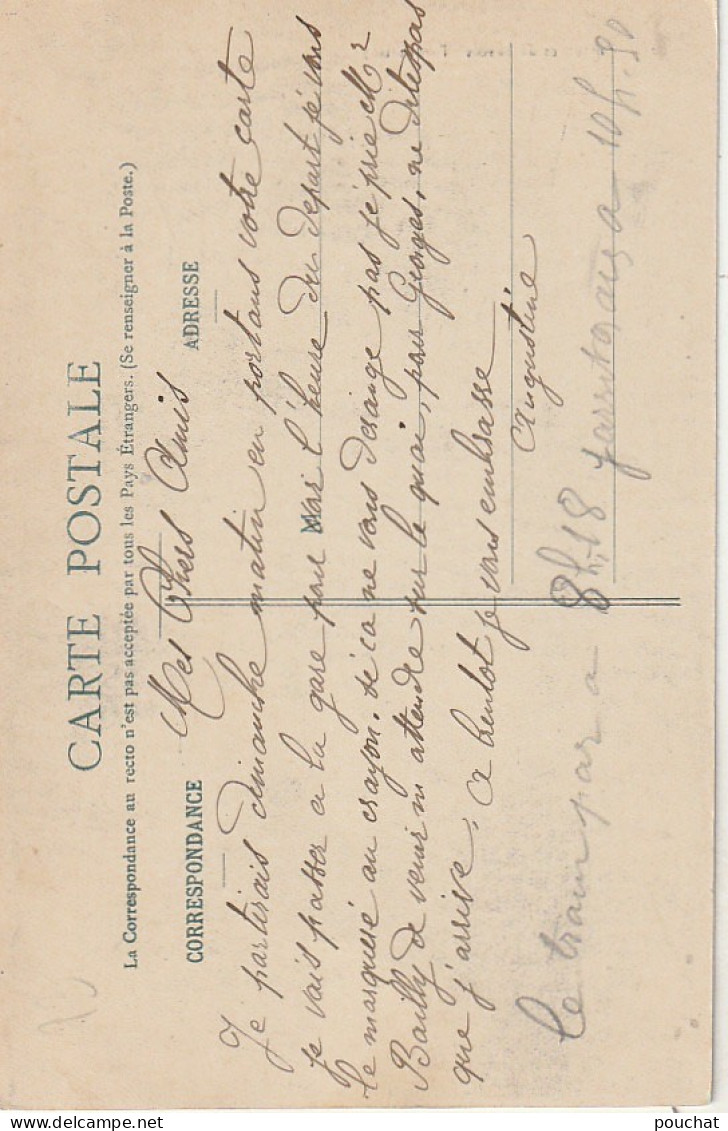 CARTE POSTALE
La Correspondance au recto n'est pas acceptée par tous les Pays Étrangers. (Se renseigner à la Poste.)
CORRESPONDANCE
ADRESSE
Mes Chers Amis
Je partirais dimanche matin en portans votre carte
je vais passer a la gare pour voir l'heure du depart je vous
le marquere au crayon. si ca ne vous derange pas je prie Mr
Bailly de venir m attendre sur le quai, pour Georges, ne dites pas
que j'arrive, a bientot je vous embrasse
Augustine
le train par a 8h,18 j'arriverais a 10h.50
M
pouchat